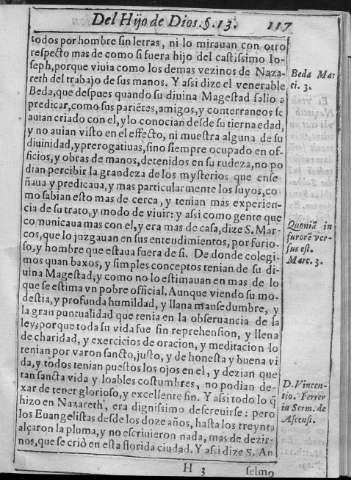 Del Hijo de Dios. §. 13. 117
todos por hombre sin letras, ni lo mirauan con otro
respecto mas de como si fuera hijo del castissimo Io-
seph, porque viuia como los demas vezinos de Naza-
reth del trabajo de sus manos. Y assi dize el venerable
Beda, que despues quando su diuina Magestad salio a
predicar, como sus parietes, amigos, y conterraneos se
auian criado con el, y lo conocian desde su tierna edad,
y no auian visto en el effecto, ni muestra alguna de su
diuinidad, y prerogatiuas, sino siempre ocupado en of-
ficios, y obras de manos, detenidos en su rudeza, no po
dian percibir la grandeza de los mysterios que ense-
ñaua y predicaua, y mas particularmente los suyos, co
mo sabian esto mas de cerca, y tenian mas experien-
cia de su trato, y modo de viuir: y assi como gente que
comunicaua mas con el, y era mas de casa, dize S. Mar-
cos, que lo juzgauan en sus entendimientos, por furio-
so, y hombre que estaua fuera de si. De donde colegi-
mos quan baxos, y simples conceptos tenian de su di-
uina Magestad, y como no lo estimauan en mas de lo
que se estima vn pobre official. Aunque viendo su mo-
destia, y profunda humildad, y llana mansedumbre, y
la gran puntualidad que tenia en la obseruancia de la
ley, porque toda su vida fue sin reprehension, y llena
de charidad, y exercicios de oracion, y meditacion lo
tenian por varon sancto, justo, y de honesta y buena vi
da, y todos tenian puestos los ojos en el, y dezian que
tan sancta vida y loables costumbres, no podian de-
xar de tener glorioso, y excellente fin. Y assi todo lo q̃
hizo en Nazareth, era dignissimo de escreuirse: pero
los Euangelistas desde los doze años, hasta los treynta
alçaron la pluma, y no escriuieron nada, mas de dezir-
nos, que se criò en esta florida ciudad. Y assi dize S. An
H 3 selmo
Beda Mar
ci. 3.
Quoniã in
furorẽ ver-
sus est.
Marc. 3.
D. Vincen-
tio. Ferrer
in Serm. de
Ascensi.